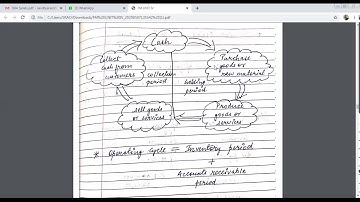 Cash
Collect
cash from
customers
collection
period
Purchase
goods or
raw material
selling
period
sell goods
or services
Produce
goods or
services
* Operating cycle = Inventory period
+
Accounts receivable
period